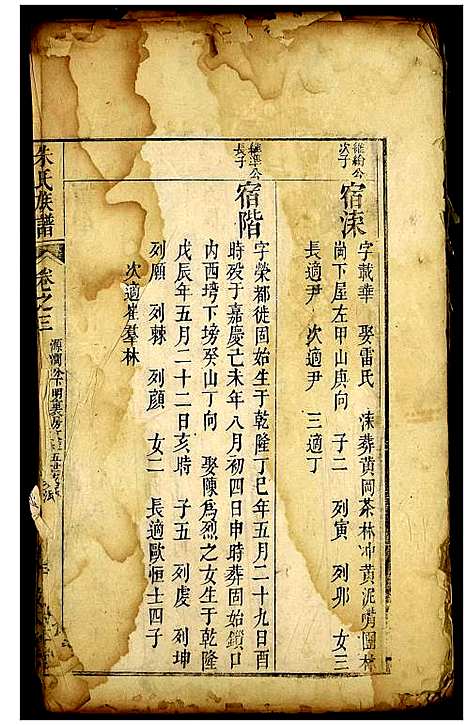 維綸公
次子
宿涑
字載華 娶雷氏 涑葬黃岡茶林冲黃泥嘴團林
崗下屋左甲山庚向 子二 列寅 列邜 女三
長適尹 次適尹 三適丁
維準公
長子
宿階
字榮都徙固始生于乾隆丁巳年五月二十九日酉
時歿于嘉慶己未年八月初四日申時葬固始鎖口
内西塆下塝癸山丁向 娶陳爲烈之女生于乾隆
戊辰年五月二十二日亥時 子五 列虔 列坤
列願 列棘 列顔 女二 長適歐恒士四子
次適崔羣林
朱氏族譜
卷之三
源潤公下明